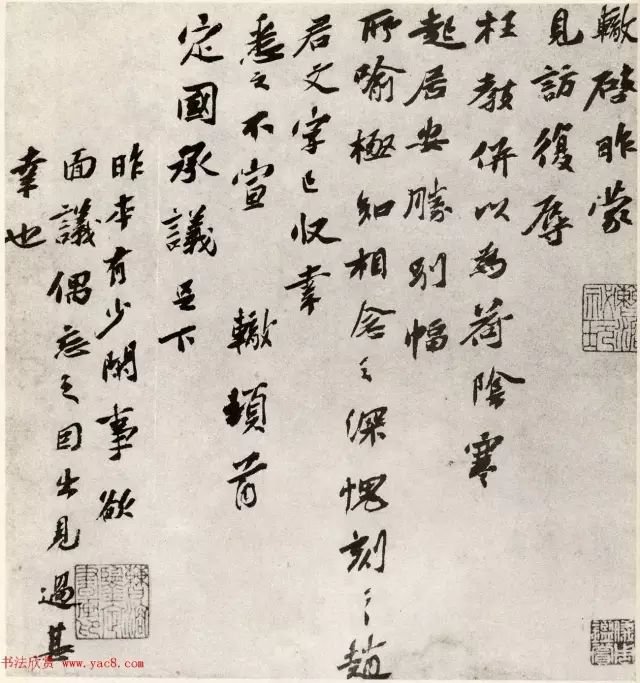 轍啓昨蒙
見訪復辱
枉教併以為荷陰寒
起居安勝別幅
所喻極知相念之深愧刻〻趙
君文字已收幸
悉之不宣　轍頓首
定國承議足下
昨本有少閑事欲
面議偶忘之因出見過甚
幸也
书法欣赏 www.yac8.com